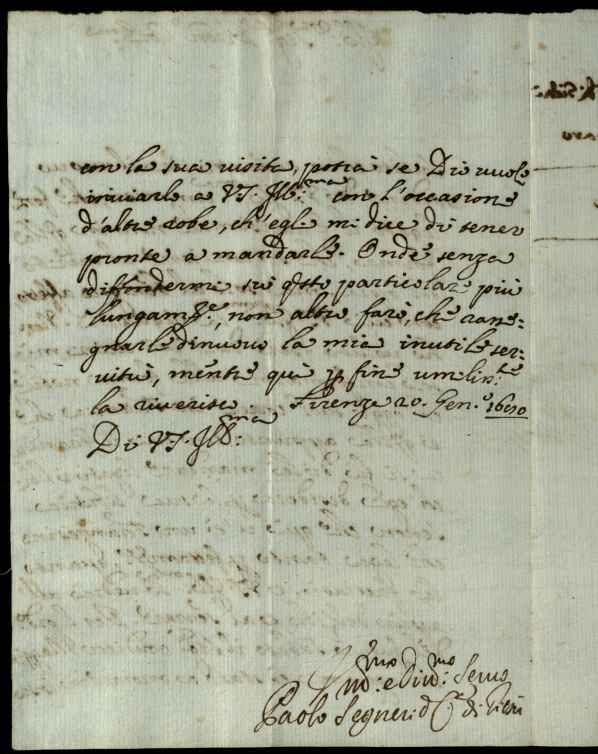 con la sua visita, potrà se Dio vuole
inviarle a VS. Ill:ma con l'occasione
d'altre robe, ch'egli mi dice di tener
pronte a mandarle. Onde senza
diffondermi sù q̃sto particolare più
lungam.te, non altro farò, che rasse:
gnarle di nuovo la mia inutile ser:
vitù, mentre quì p fine umilm:te
la riverisco. Firenze 20. Gen.o
Di VS. Ill:ma
e Div:mo Servo
Paolo Segneri d C.a di Giesù